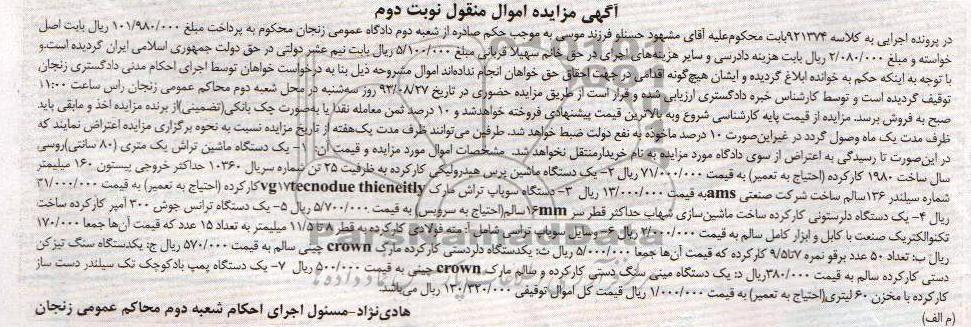 آگهی مزایده اموال منقول نوبت دوم
در پرونده اجرایی به کلاسه ۹۲۱۳۷۴بابت محکوم‌علیه آقای مشهود حسنلو فرزند موسی به موجب حکم صادره از شعبه دوم دادگاه عمومی زنجان محکوم به پرداخت مبلغ ۱۰۱/۹۸۰/۰۰۰ ریال بابت اصل
خواسته و مبلغ ۲/۰۸۰/۰۰۰ ریال بابت هزینه دادرسی و سایر هزینه‌های اجرائی در حق خانم سهیلا قربانی و مبلغ ۵/۱۰۰/۰۰۰ ریال بابت نیم عشر دولتی در حق دولت جمهوری اسلامی ایران گردیده است.و
با توجه به اینکه حکم به خوانده ابلاغ گردیده و ایشان هیچ‌گونه اقدامی در جهت احقاق حق خواهان انجام نداده‌اند اموال مشروحه ذیل بنا به درخواست خواهان توسط اجرای احکام مدنی دادگستری زنجان
توقیف گردیده است و توسط کارشناس خبره دادگستری ارزیابی شده و قرار است از طریق مزایده حضوری در تاریخ ۹۳/۰۸/۲۷ روز سه‌شنبه در محل شعبه دوم محاکم عمومی زنجان راس ساعت ۱۱:۰۰
صبح به فروش برسد. مزایده از قیمت پایه کارشناسی شروع وبه بالاترین قیمت پیشنهادی فروخته خواهدشد و ۱۰ درصد ثمن معامله نقدا یا به‌صورت چک بانکی(تضمینی)از برنده مزایده اخذ و مابقی باید
ظرف مدت یک ماه وصول گردد در غیراین‌صورت ۱۰ درصد ماخوذه به نفع دولت ضبط خواهد شد. طرفین می‌توانند ظرف مدت یک‌هفته از تاریخ مزایده نسبت به نحوه برگزاری مزایده اعتراض نمایند که
در این‌صورت تا رسیدگی به اعتراض از سوی دادگاه مورد مزایده به نام خریدارمنتقل نخواهد شد. مشخصات اموال مورد مزایده و قیمت آن: ۱- یک دستگاه ماشین تراش یک متری (۸۰ سانتی)روسی
سال ساخت ۱۹۸۰ کارکرده (احتیاج به تعمیر) به قیمت ۷۱/۰۰۰/۰۰۰ ریال ۲- یک دستگاه ماشین پرس هیدرولیکی کارکرده به ظرفیت ۲۵ تن شماره سریال ۱۰۳۶۰ حداکثر خروجی پیستون ۱۶۰ میلیمتر
شماره سیلندر ۱۳۶سالم ساخت شرکت صنعتی amsبه قیمت ۱۳/۰۰۰/۰۰۰ ریال ۳- دستگاه سوپاپ تراش مارک vg۱۷tecnodue thieneitlyکارکرده (احتیاج به تعمیر) به قیمت ۳۱/۰۰۰/۰۰۰
ریال ۴- یک دستگاه دلرستونی کارکرده ساخت ماشین‌سازی شهاب حداکثر قطر سر ۱۶mmسالم(احتیاج به سرویس) به قیمت ۵/۷۰۰/۰۰۰ ریال ۵- یک دستگاه ترانس جوش ۳۰۰ آمپر کارکرده ساخت
تکنوالکتریک صنعت با کابل و ابزار کامل سالم به قیمت ۲/۰۰۰/۰۰۰ ریال ۶- وسایل سوپاپ تراشی شامل: آ: مته فولادی کارکرده به قطر ۸تا ۱۱/۵ میلیمتر به تعداد ۱۵ عدد که قیمت آن‌ها جمعا ۱۷۰/۰۰۰
ریال ب: تعداد ۵۰ عدد برقو نمره ۷تا۹/۵ کارکرده که قیمت آن‌ها جمعا ۵/۰۰۰/۰۰۰ ریال ت: یکدستگاه دلردستی کارکرده مارک crown چینی سالم به قیمت ۵۷۰/۰۰۰ ریال ج: یکدستگاه سنگ تیزکن
دستی کارکرده سالم به قیمت ۳۸۰/۰۰۰ریال د: یک دستگاه مینی سنگ دستی کارکرده و سالم مارک crown چینی به قیمت ۵۰۰/۰۰۰ ریال ۷- یک دستگاه پمپ بادکوچک تک سیلندر دست ساز
کارکرده با مخزن ۶۰ لیتری(احتیاج به تعمیر) به قیمت ۱/۰۰۰/۰۰۰ ریال قیمت کل اموال توقیفی ۱۳۰/۳۲۰/۰۰۰ ریال می‌باشد.
(م الف) هادی‌نژاد-مسئول اجرای احکام شعبه دوم محاکم عمومی زنجان